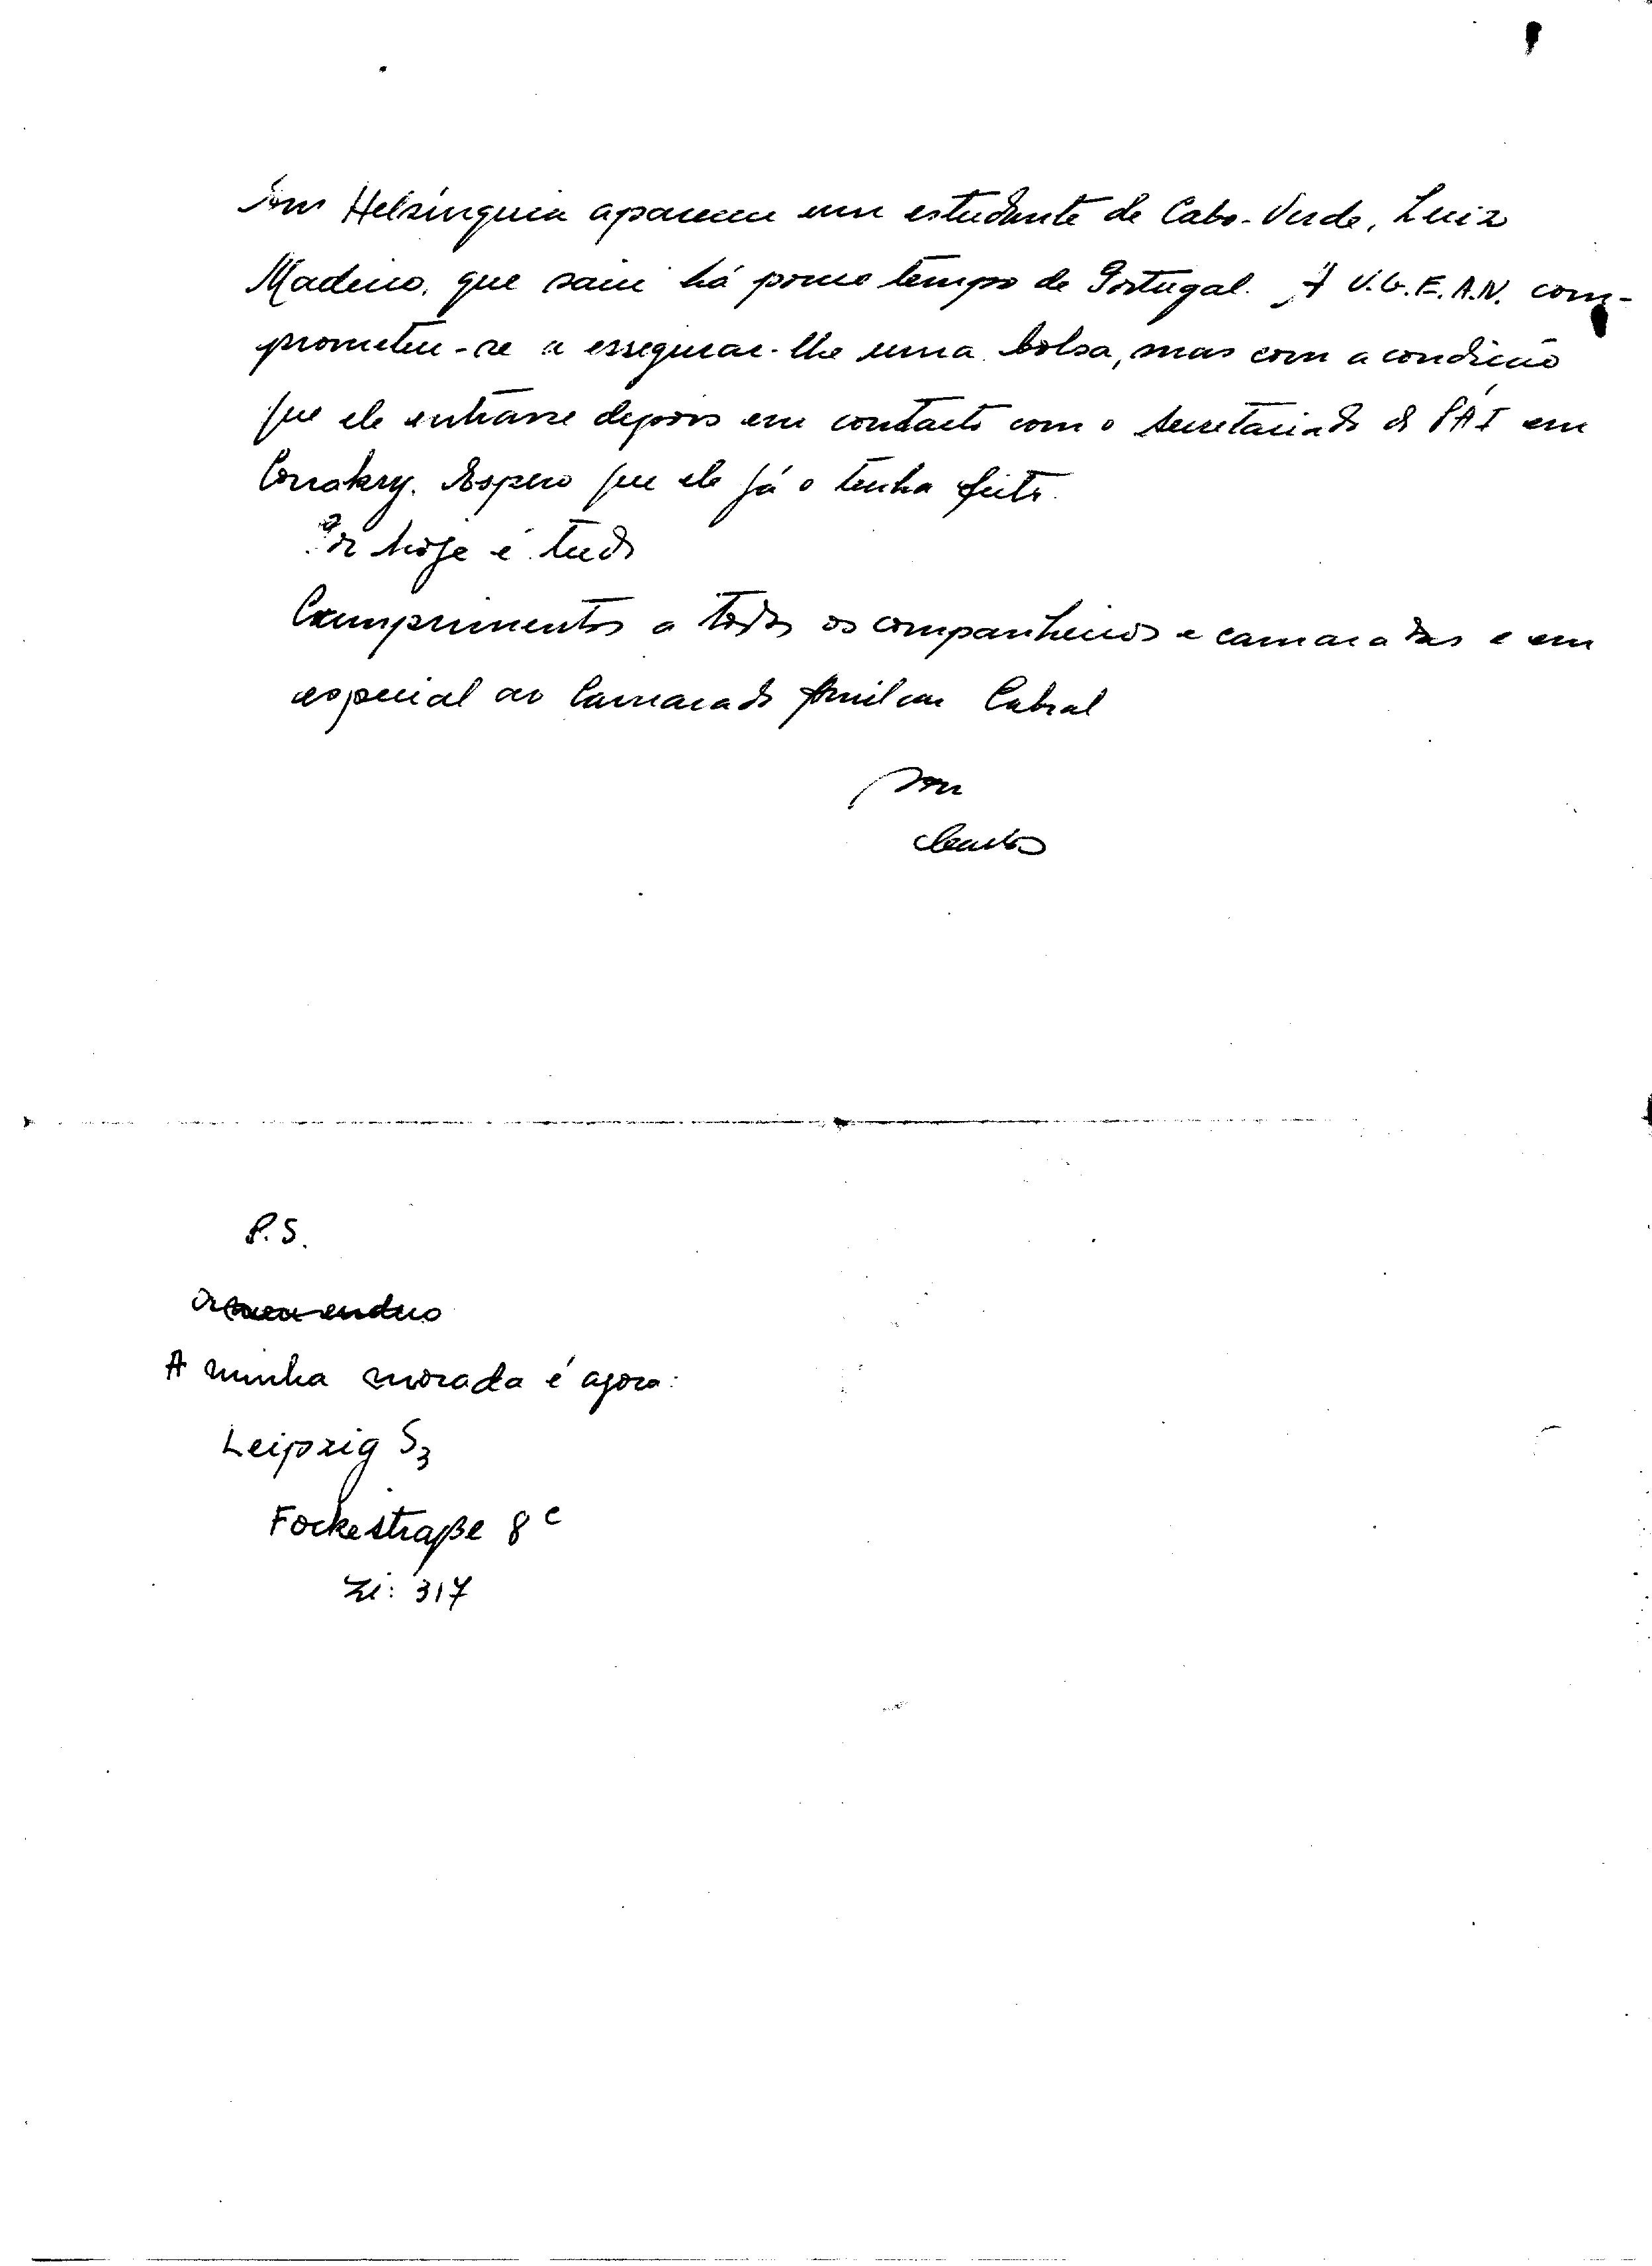 Em Helsínquia apareceu um estudante de Cabo-Verde, Luiz
Madeira, que saiu há pouco tempo de Portugal. A U.G.E.A.N. com-
prometeu-se a essegurar-lhe uma bolsa, mas com a condicão
que ele entrasse depois em contacto com o secretariado do PAI em
Conakry. Espero que ele já o tenha feito.
Por hoje é tudo
Cumprimentos a todos os companheiros e camaradas e em
especial ao Camarada Amilcar Cabral
P.S.
A minha morada é agora:
Leipzig S3
Fockestraße 8c
Zi: 317